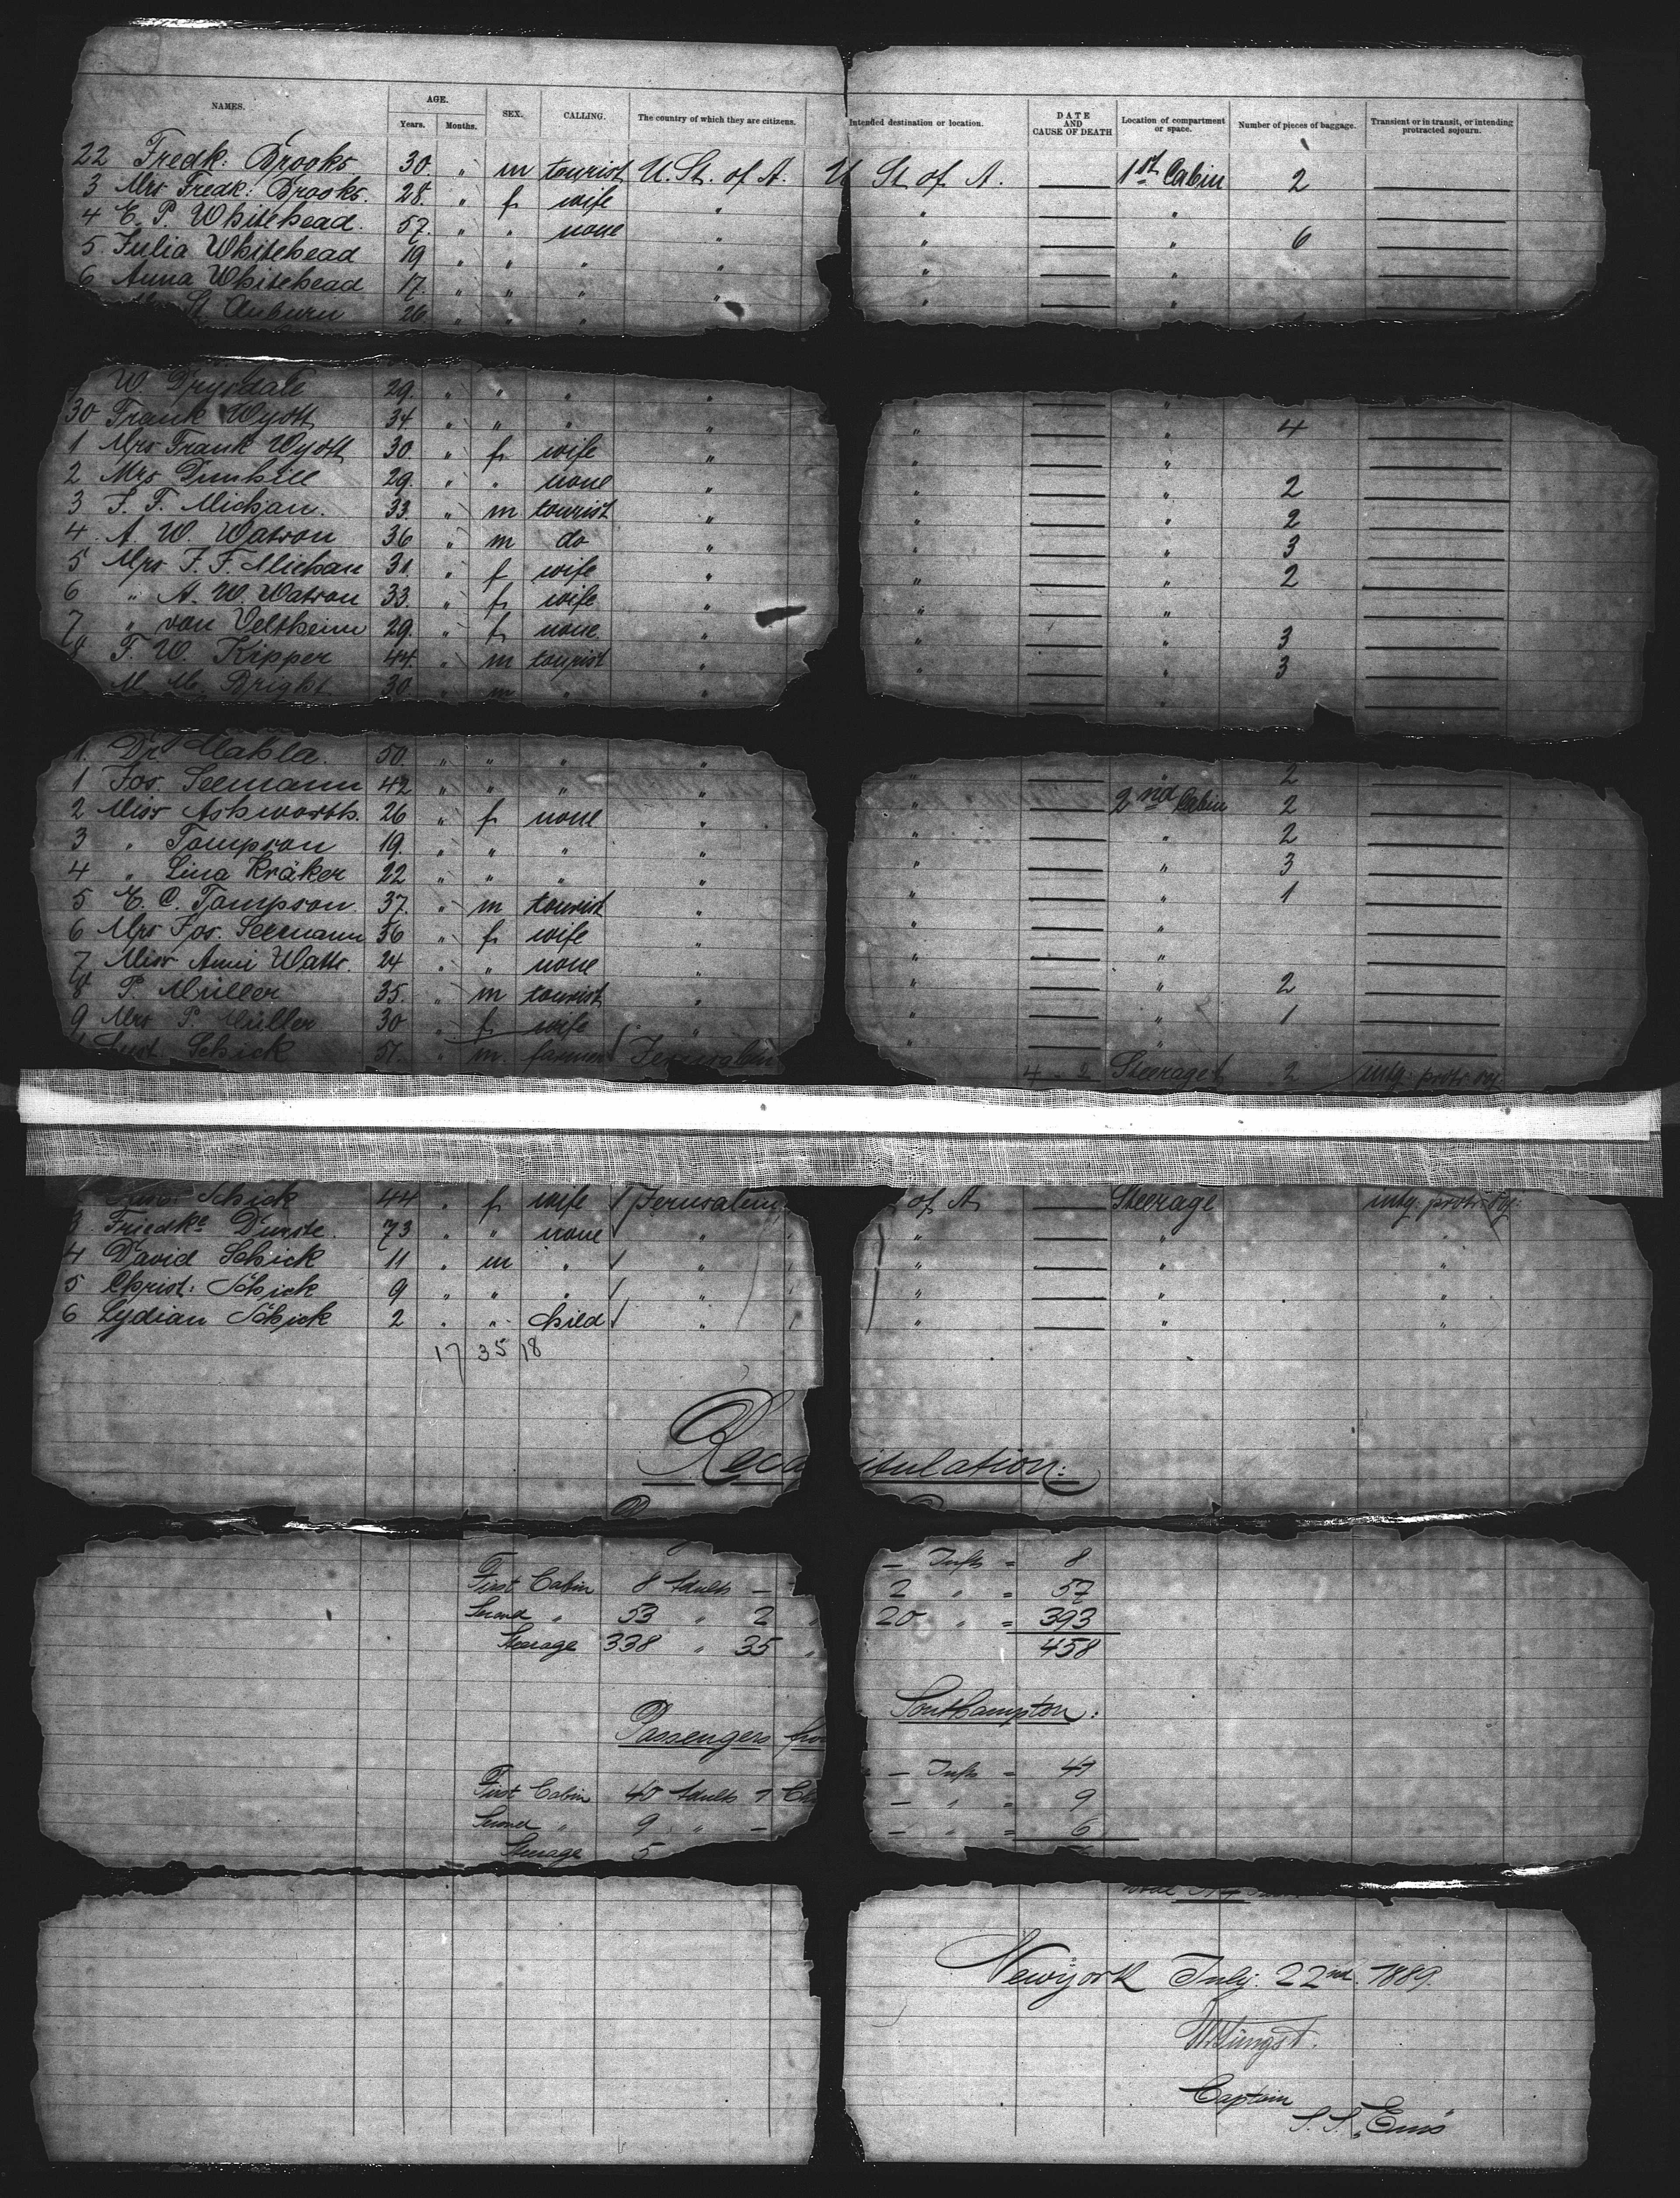 NAMES. AGE. SEX. CALLING. The country of which they are citizens. Intended destination or location. DATE AND CAUSE OF DEATH Location of compartment or space. Number of pieces of baggage. Transient or in transit, or intending protracted sojourn.
Years. Months.
22 Fredk: Brooks 30. " m tourist U. St. of A. U St. of A. — 1st Cabin 2 —
3 Mrs Fredk: Brooks. 28. " f wife " " — " —
4 E. P. Whitehead. 57. " " none " " — " 6 —
5 Julia Whitehead 19 " " " " " — " —
6 Anna Whitehead 17. " " " " " — " —
St. Auburn 26 " " "
W Drysdale 29. " " " " " — " —
30 Frank Wyott 34 " " " " " — " 4 —
1 Mrs Frank Wyott 30. " f wife " " — " —
2 Mrs Dunhill 29. " " none " " — " 2 —
3 F. F. Michan. 33. " m tourist " " — " 2 —
4. A. W. Watson 36 " m do " " — " 3 —
5 Mrs F. F. Michan 31. " f wife " " — " 2 —
6 " A. W. Watson 33. " f wife " " — " —
7 " von Veltheim 29. " f none. " " — " 3 —
8 F. W. Kipper 44. " m tourist " " — " 3 —
M. Bright 30. " m " " —
Dr Mahla. 50. " " " " — " 2 —
1 Jos. Seemann 42 " " " " " — 2nd Cabin 2 —
2 Miss Ashworth. 26 " f none " " — " 2 —
3 " Tompson 19. " " " " " — " 3 —
4 " Lina Kräker 22 " " " " " — " 1 —
5 E. C. Tompson. 37. " m tourist " " — " —
6 Mrs Jos. Seemann 36 " f wife " " — " —
7 Miss Anni Watts. 24 " " none " " — " 2 —
8 P. Müller 35. " m tourist " " — " 1 —
9 Mrs P. Müller 30 " f wife " —
Schick 51. " m. farmer Jerusalem Steerage 2 intg. protr. soj.
Schick 44 " f wife Jerusalem of A — Steerage intg. protr. soj.
3. Friedke Durste. 73 " " none " " — " "
4 David Schick 11 " m " " " — " "
5 Christ: Schick 9 " " " " " — " "
6 Lydian Schick 2 " " child " " — " "
17 35 18
Recapitulation:
First Cabin 8 Adults — — Infts = 8
Second " 53 " 2 " 2 " = 57
Steerage 338 " 35 " 20 " = 393
458
Passengers from Southampton:
First Cabin 40 Adults 1 Ch — Infts = 41
Second " 9 " — — " = 9
Steerage 5 — " = 6
Newyork July: 22nd. 1889.
Captain
S. S. "Ems"